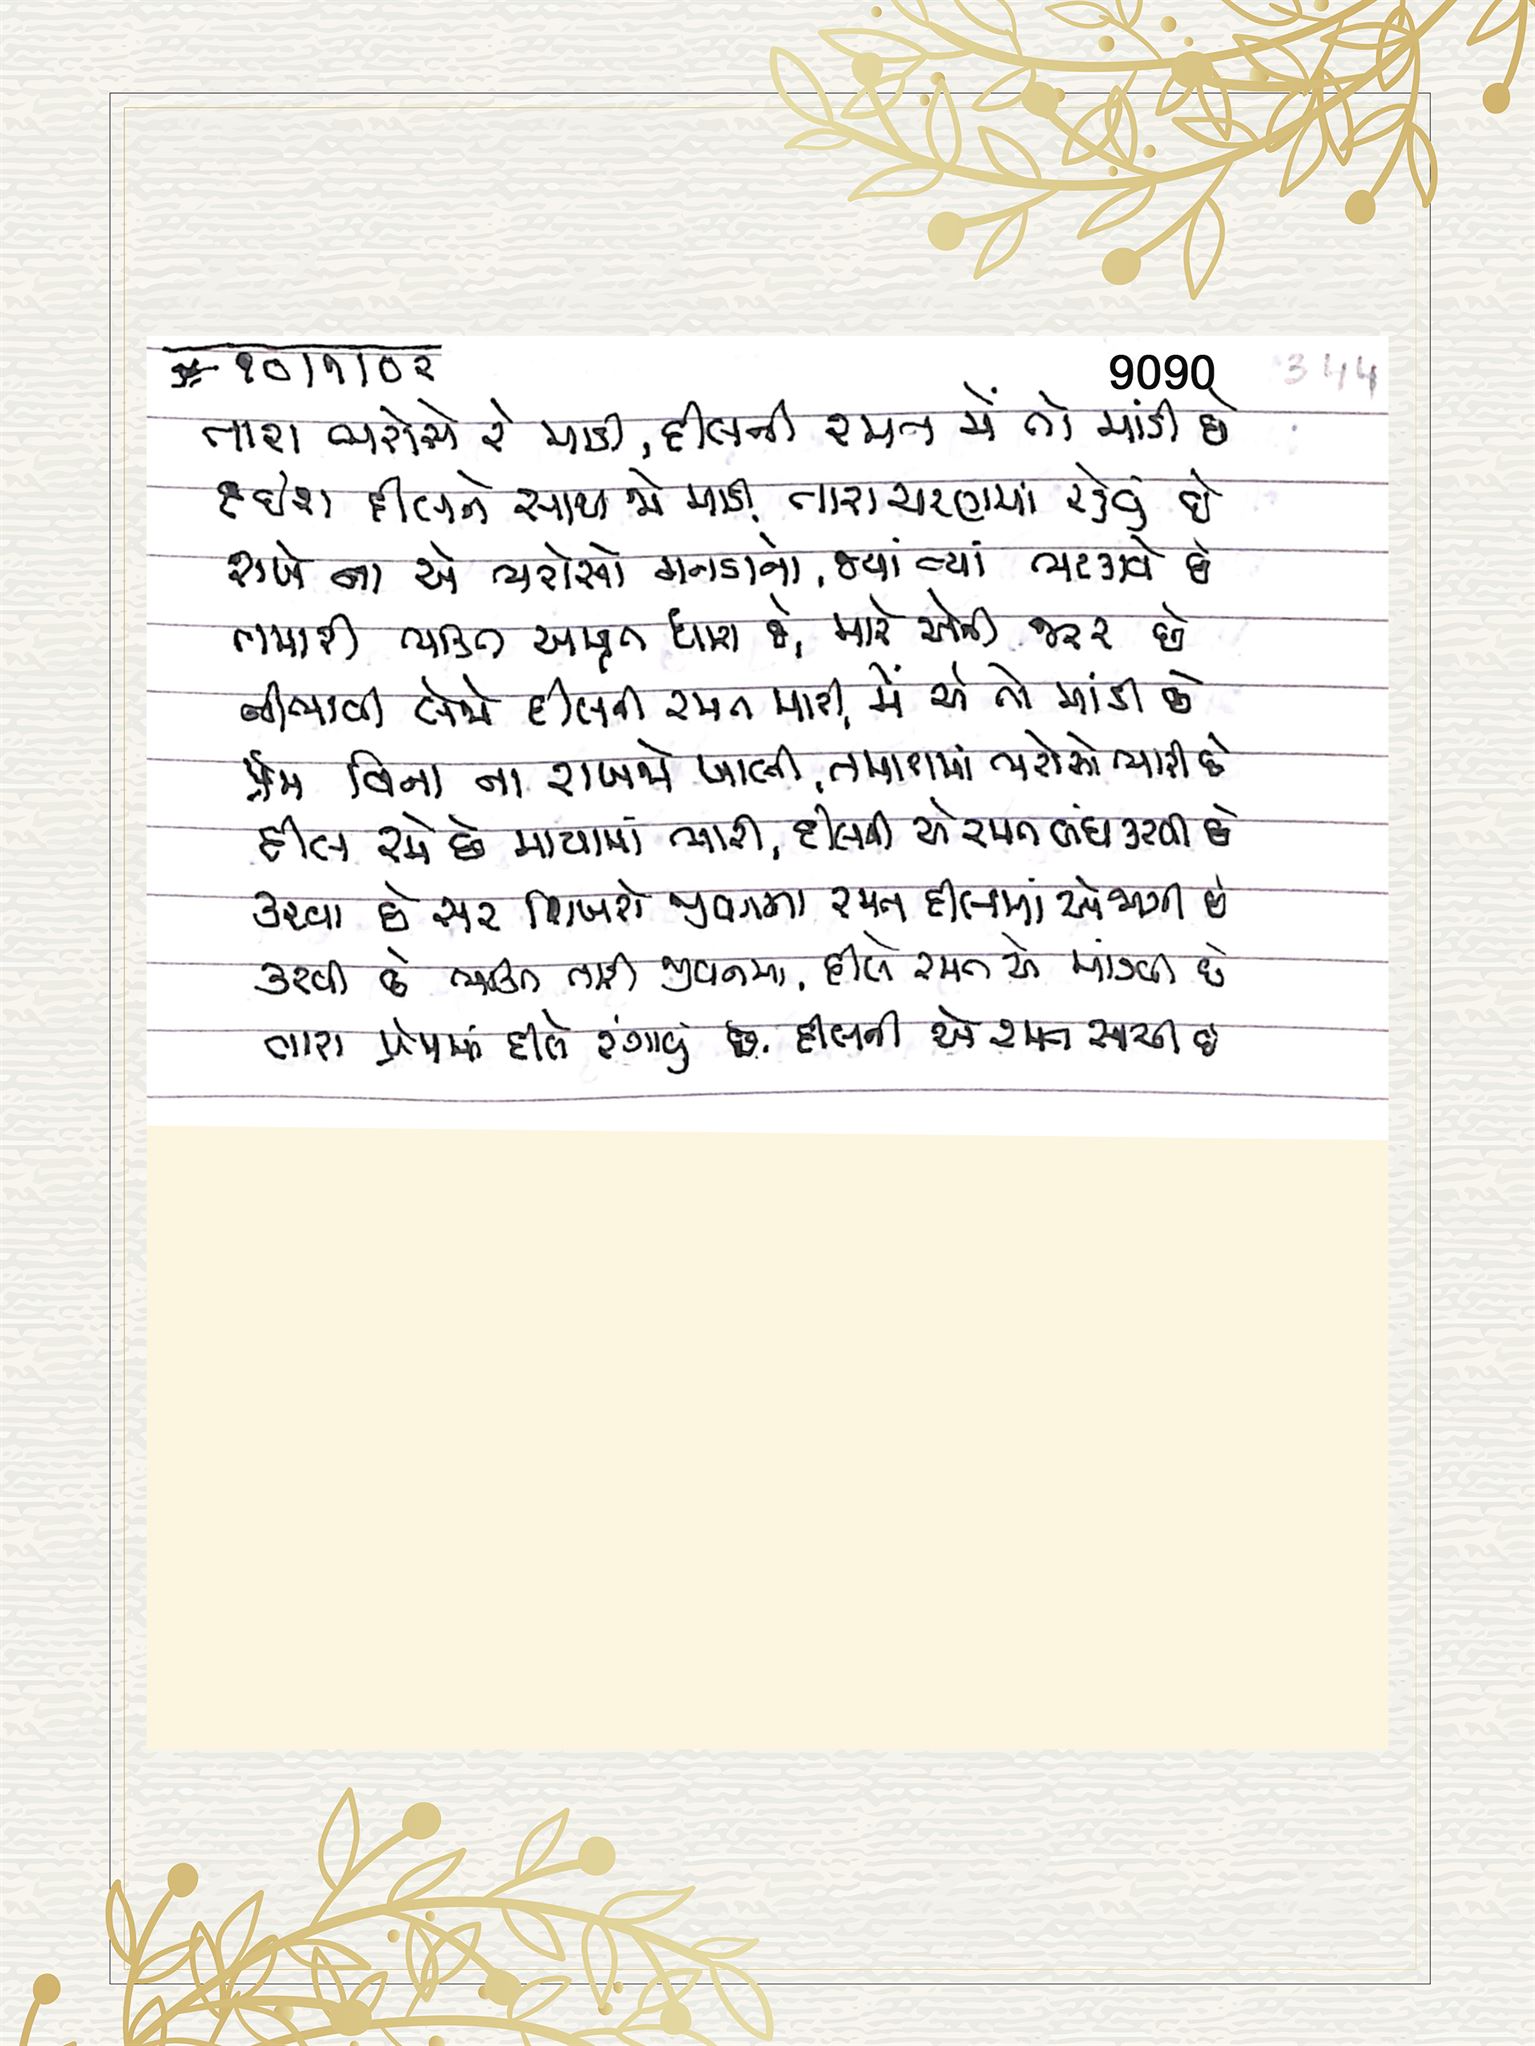 ૧૦/૧/૦૨
9090
૩૫૫
તારા ભરોસે રે માડી, દીલની રમત મેં તો માંડી છે
દીલને સાથ જે માડી, તારા ચરણમાં રહેવું છે
રાખે ના એ ભરોસો મનડાનો, જ્યાં ત્યાં ભટકાવે છે
તમારી ભક્તિ અમૃત ધારા છે, મારે એની જરૂર છે
નીભાવી લેજે દીલની રમત મારી, મેં એ તો માંડી છે
પ્રેમ વિના ના રાખજે ખાલી, તમારામાં ભરોસો ભારી છે
દીલ રમે છે માયામાં ભારી, દીલની એ રમત બંધ કરવી છે
કરવા છે સર શિખરો જીવનમા રમત દીલમાં એ જાગી છે
કરવી છે ભક્તિ તારી જીવનમા, દીલે રમત એ માંડવી છે
તારા પ્રેમમાં દીલે રંગાવું છે. દીલની એ રમત સાચી છે